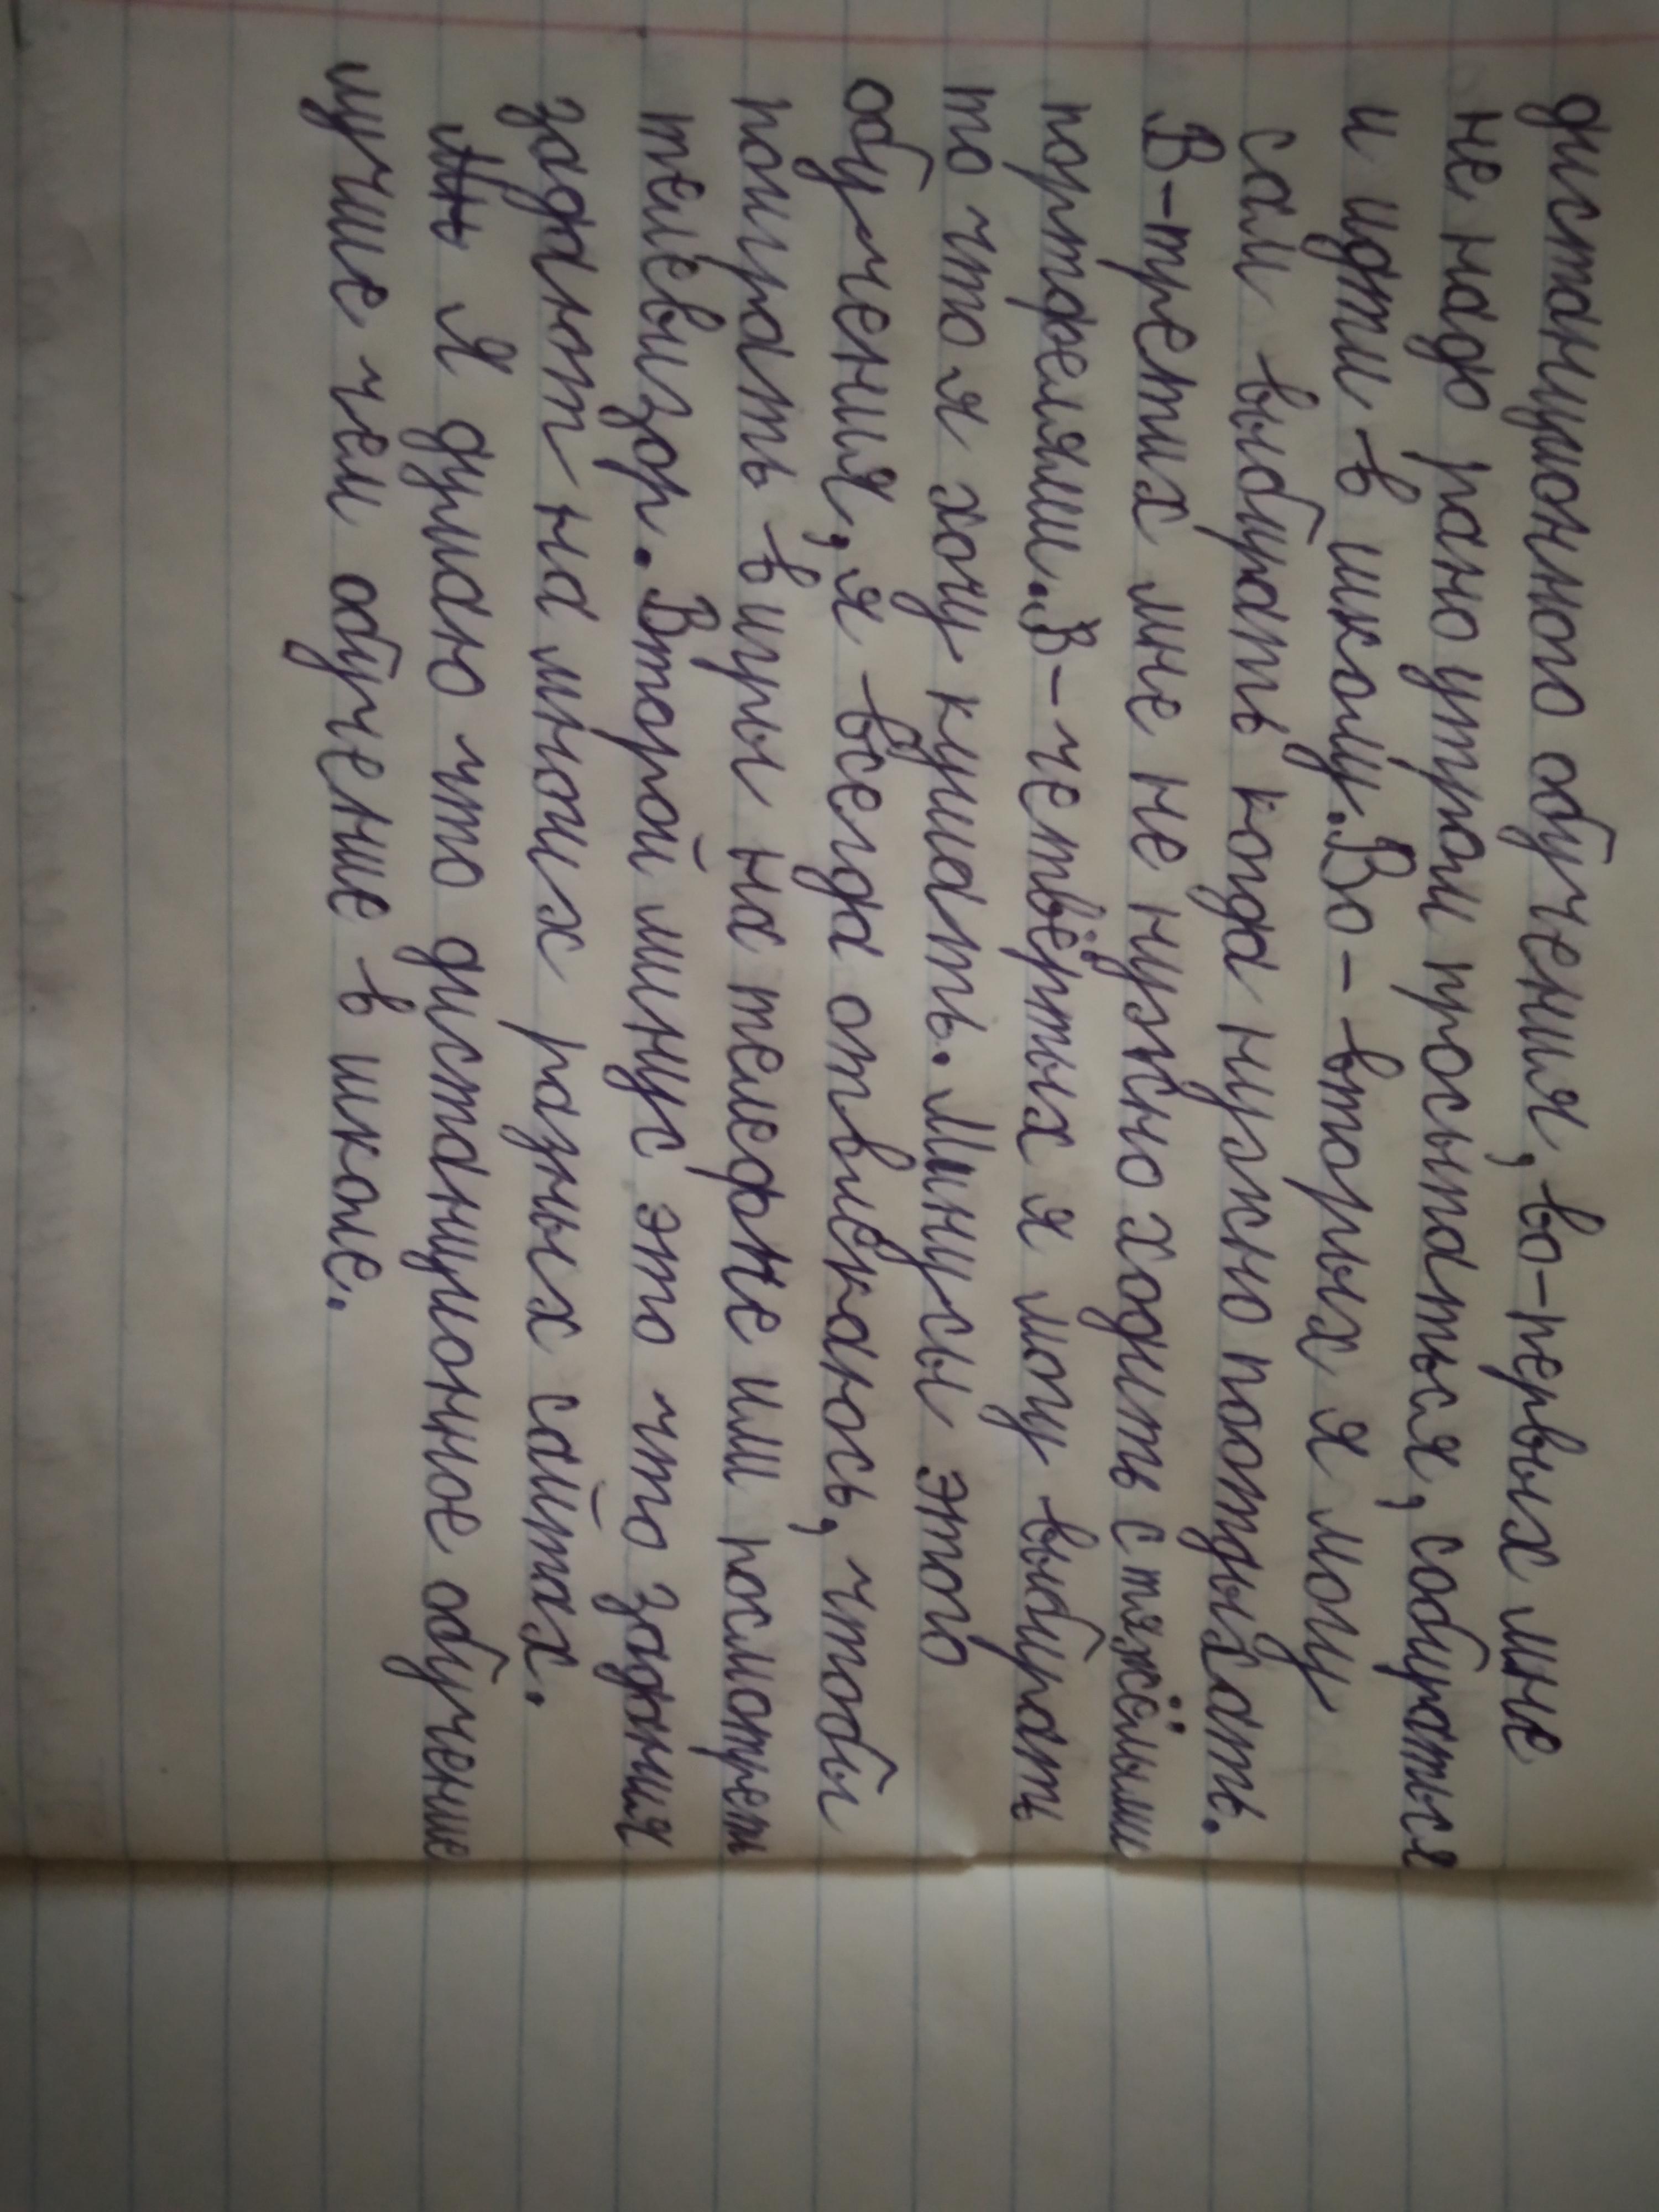 дистанционного обучения, во-первых мне
не надо рано утром просыпаться, собираться
и идти в школу. Во-вторых я могу
сам выбирать когда нужно поотдыхать.
В-третих мне не нужно ходить с тяжёлыми
портфелями. В-четвёртых я могу выбирать
то что я хочу кушать. Минусы этого
обучения, я всегда отвлекаюсь, чтобы
поиграть в игры на телефоне или посмотреть
телевизор. Второй минус это что задания
задают на многих разных сайтах.
Я думаю что дистанционное обучение
лучше чем обучение в школе.